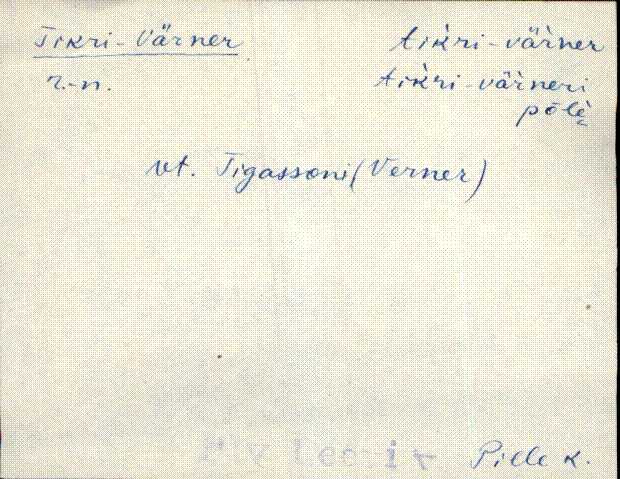 Tikri-Värner tik̀ri-vär̀ner
r.-n. tik̀ri-vär̀neri
põlè
vt. Tigassoni (Verner)
Pille K.